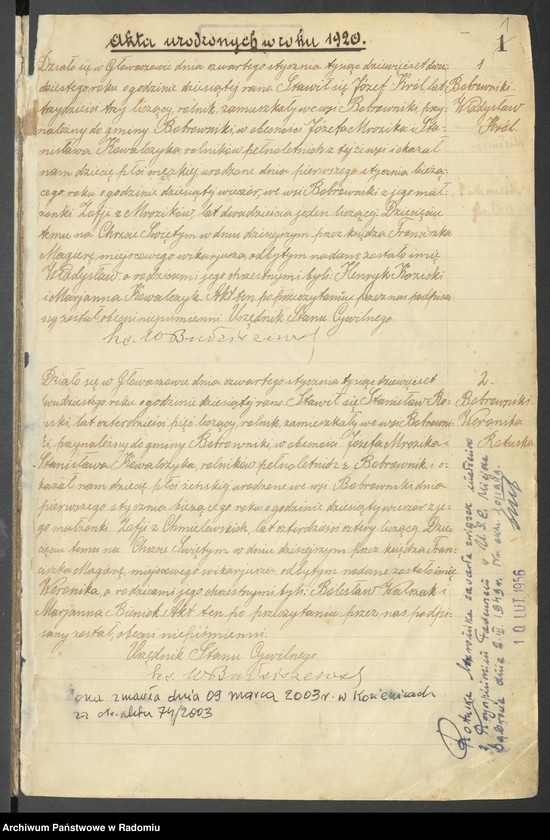 1
Akta urodzonych w roku 1920.
Działo się w Głowaczowie dnia czwartego stycznia tysiąc dziewięćset dwu-
dziestego roku o godzinie dziesiątej rano. Stawił się Józef Król lat
trzydzieści trzy liczący, rolnik, zamieszkały we wsi Bobrowniki, przy-
należny do gminy Bobrowniki, w obecności Józefa Mrozika i Sta-
nisława Kowalczyka rolników pełnoletnich z tejże wsi i okazał
nam dziecię płci męzkiej, urodzone dnia pierwszego stycznia bieżą-
cego roku o godzinie dziesiątej wieczór, we wsi Bobrowniki z jego mał-
żonki Zofji z Mrozików, lat dwadzieścia jeden liczącej. Dziecięciu
temu na Chrzcie Świętym w dniu dzisiejszym przez księdza Franciszka
Magurę, miejscowego wikarjusza, odbytym nadane zostało imię
Władysław, a rodzicami jego chrzestnymi byli: Henryk
i Marjanna Kowalczyk. Akt ten po przeczytaniu przez nas podpisa-
ny został, obecni niepiśmienni. Urzędnik Stanu Cywilnego
ks. W Budziszewski
1
Bobrowniki
Władysław
Król
Działo się w Głowaczowie dnia czwartego stycznia tysiąc dziewięćset
dwudziestego roku o godzinie dziesiątej rano. Stawił się Stanisław
lat czterdzieści pięć liczący, rolnik, zamieszkały we wsi Bobrowni-
ki przynależny do gminy Bobrowniki w obecności Józefa Mrozika i
Stanisława Kowalczyka, rolników, pełnoletnich z Bobrownik i o-
kazał nam dziecię płci żeńskiej, urodzone we wsi Bobrowniki dnia
pierwszego stycznia bieżącego roku o godzinie dziesiątej wieczór z je-
go małżonki Zofji z Chmielewskich, lat czterdzieści cztery liczącej. Dzie-
cięciu temu na Chrzcie Świętym w dniu dzisiejszym przez księdza Fran-
ciszka Magurę, miejscowego wikarjusza, odbytym nadane zostało imię
Weronika, a rodzicami jego chrzestnymi byli: Bolesław Walczak i
Marjanna Bieniek. Akt ten po przeczytaniu przez nas podpi-
sany został, obecni niepiśmienni.
Urzędnik Stanu Cywilnego
ks. W Budziszewski
2.
Bobrowniki
Weronika
Rotuska
ona zmarła dnia 09 marca 2003 r. w Kozienicach
nr aktu 74/2003
Weronika zawarła związek małżeński
z Tadeuszem w U.S.C.
dnia
10 LUT 1956
Archiwum Państwowe w Radomiu